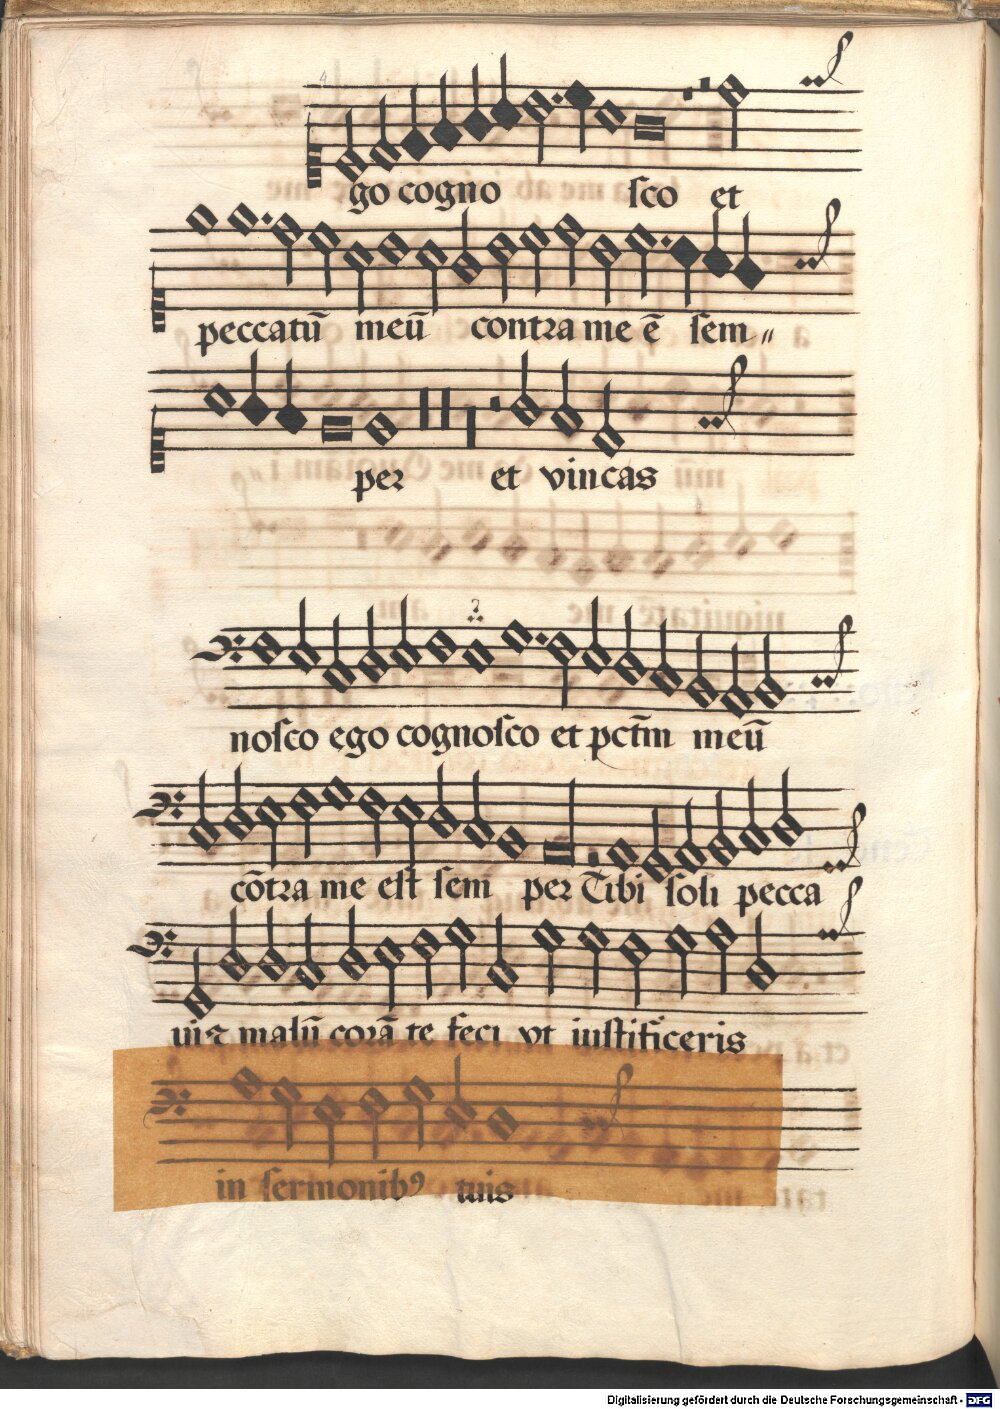 go cogno sco et
peccatū meū contra me ē sem〃
per et vincas
nosco ego cognosco et pctm̄ meū
cōtra me est sem per Tibi soli pecca
ui ⁊ malū corā te feci vt iustificeris
in sermonibꝰ tuis
Digitalisierung gefördert durch die Deutsche Forschungsgemeinschaft - DFG